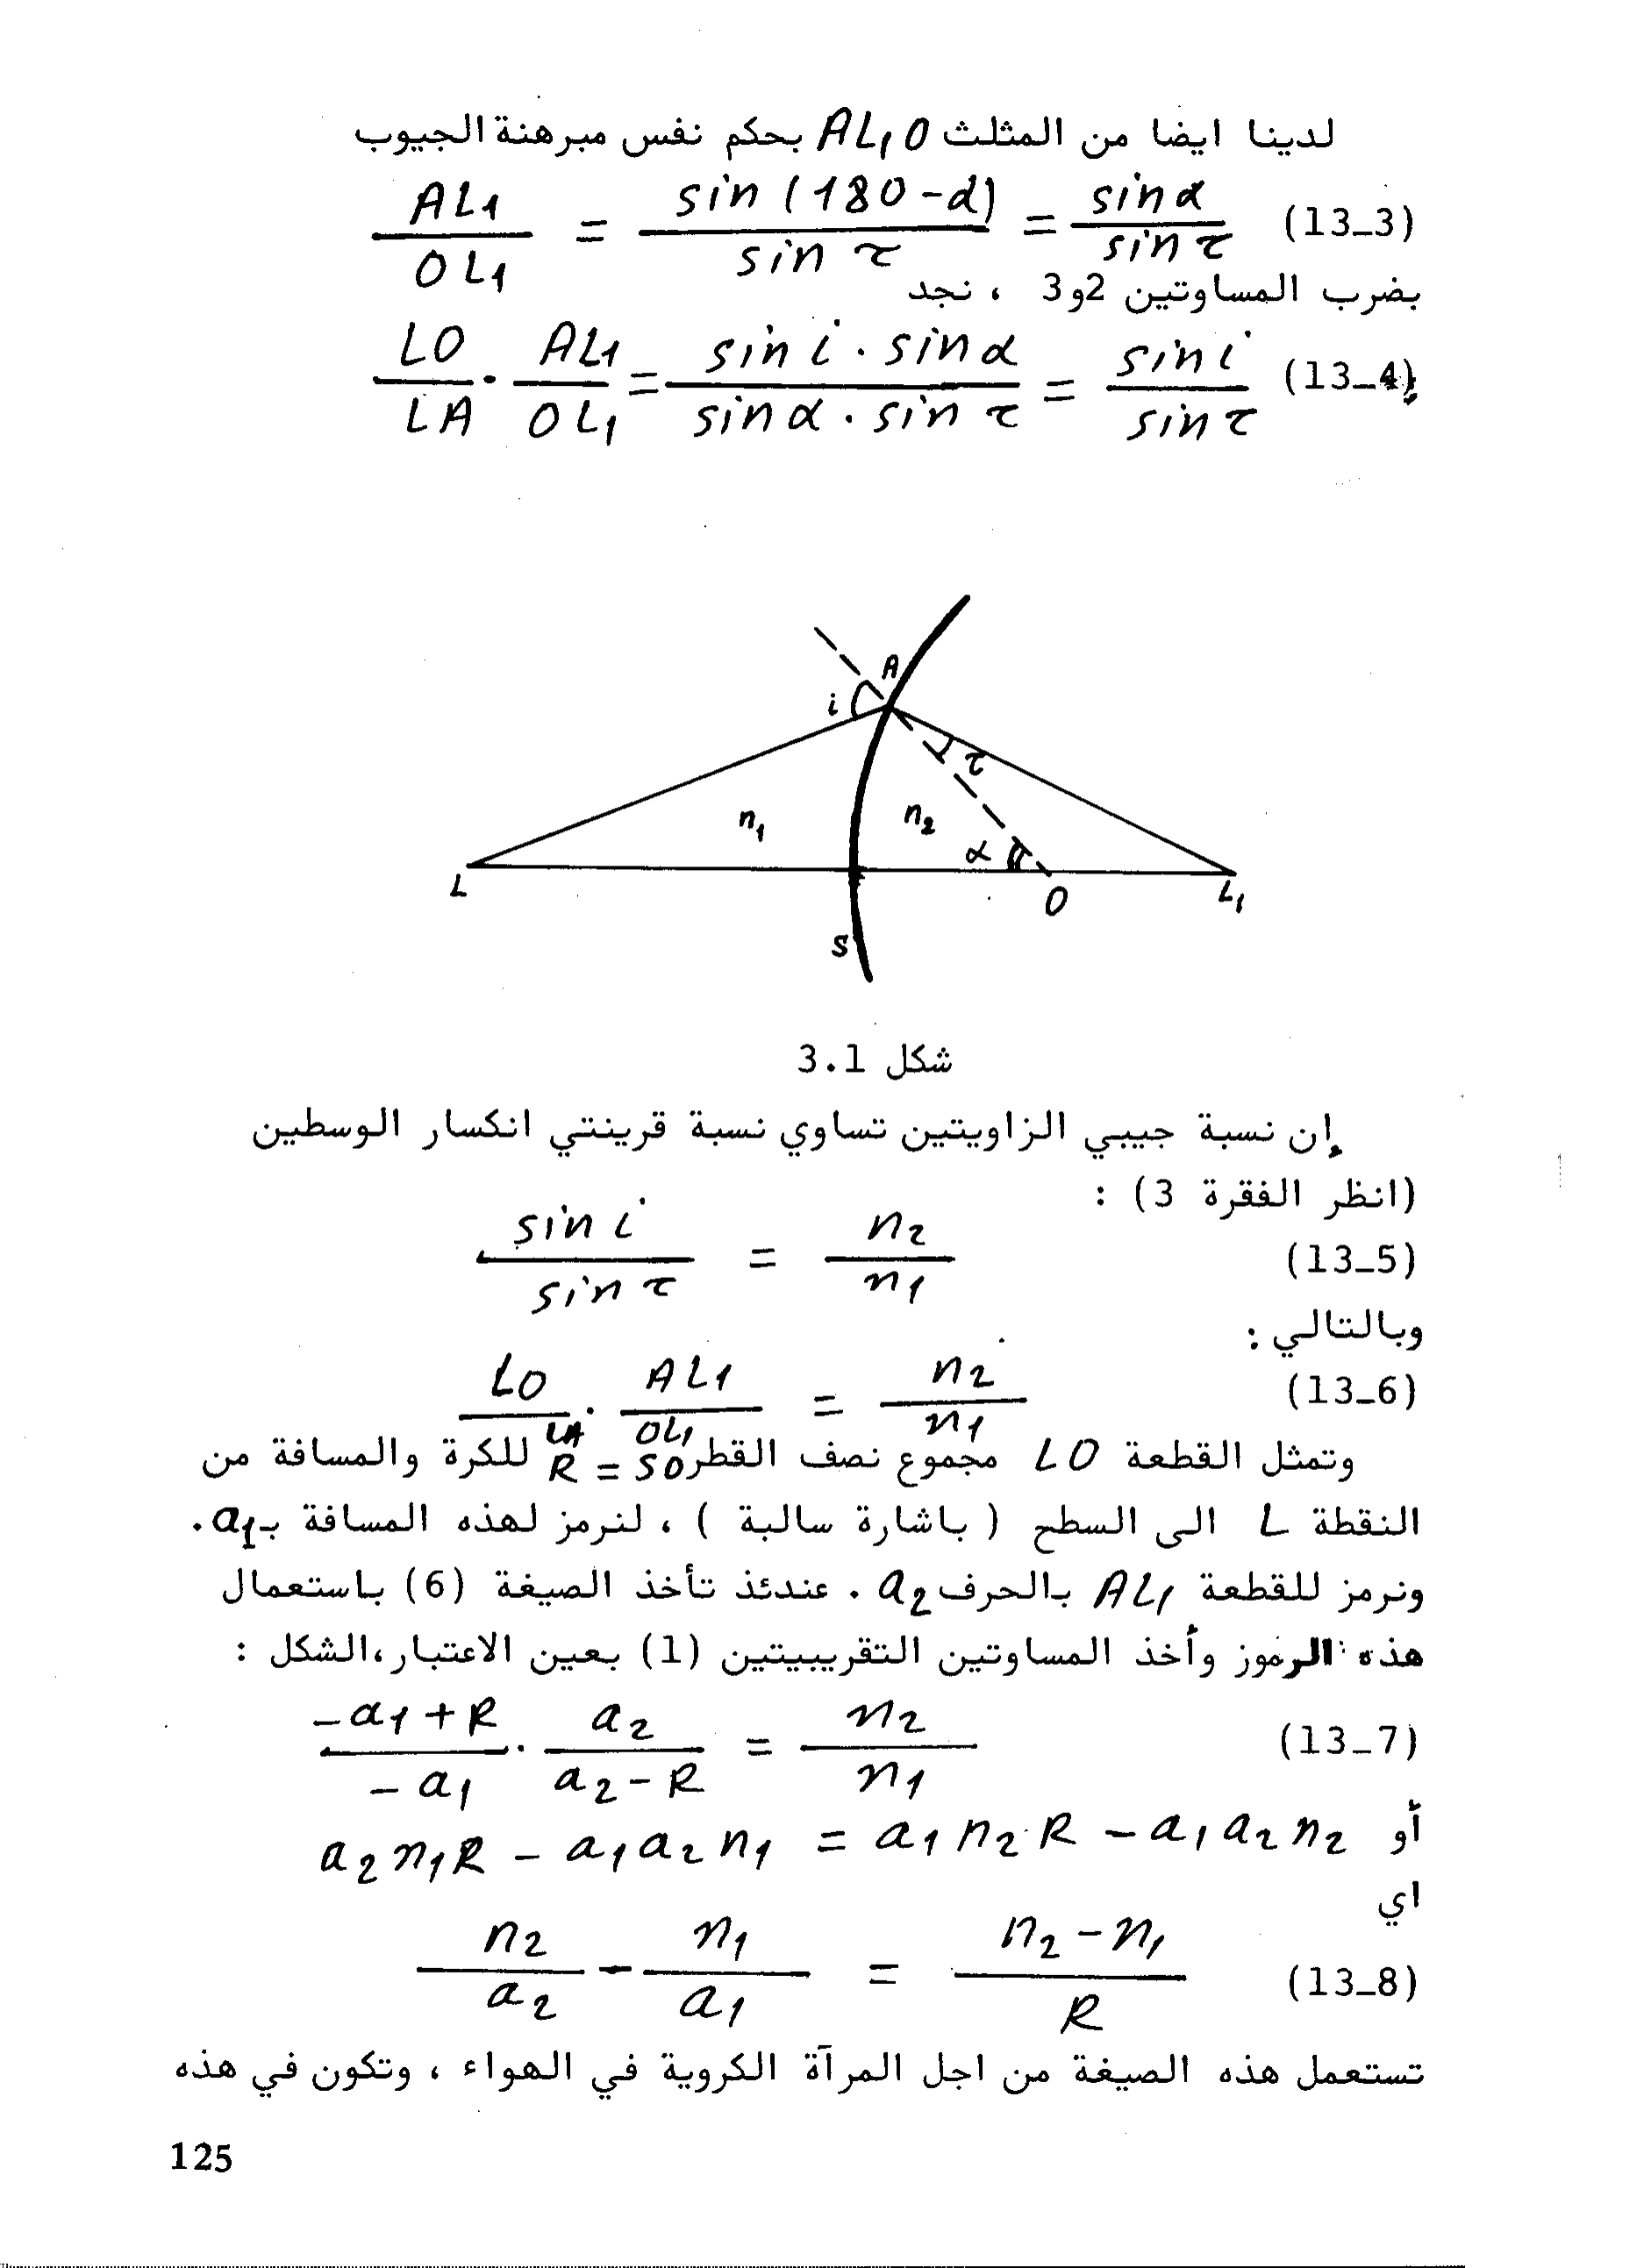 لدينا ايضا من المثلث AL₁O بحكم نفس مبرهنة الجيوب
AL₁ / OL₁ = sin (180 - α) / sin τ = sin α / sin τ (13_3)
بضرب المساوتين 2و3 ، نجد
LO / LA · AL₁ / OL₁ = sin i · sin α / sin α · sin τ = sin i / sin τ (13_4)
A
i
τ
n₁
n₂
α
L
O
L₁
S
شكل 3.1
إن نسبة جيبي الزاويتين تساوي نسبة قرينتي انكسار الوسطين
(انظر الفقرة 3) :
sin i / sin τ = n₂ / n₁ (13_5)
وبالتالي :
LO / LA · AL₁ / OL₁ = n₂ / n₁ (13_6)
وتمثل القطعة LO مجموع نصف القطر R = SO للكرة والمسافة من
النقطة L الى السطح ( باشارة سالبة ) ، لنرمز لهذه المسافة بـ a₁.
ونرمز للقطعة AL₁ بالحرف a₂ . عندئذ تأخذ الصيغة (6) باستعمال
هذه الرموز وأخذ المساوتين التقريبيتين (1) بعين الاعتبار،الشكل :
-a₁ + R / -a₁ · a₂ / a₂ - R = n₂ / n₁ (13_7)
أو a₂n₁R - a₁a₂n₁ = a₁n₂R - a₁a₂n₂
اي
n₂ / a₂ - n₁ / a₁ = n₂ - n₁ / R (13_8)
تستعمل هذه الصيغة من اجل المرآة الكروية في الهواء ، وتكون في هذه
125